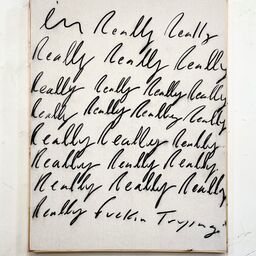 im Really Really
Really Really Really
Really Really Really Really
Really Really Really Really
Really Really Really
Really Really Really
Really Really Really
Really fuckin Trying.